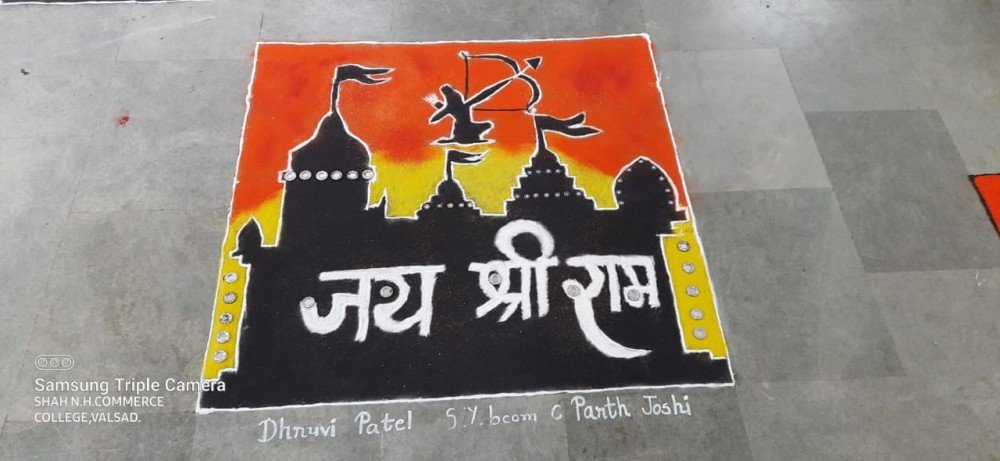 जय श्री राम
Dhruvi Patel S.Y.bcom C Parth Joshi
Samsung Triple Camera
SHAH N.H.COMMERCE
COLLEGE,VALSAD.